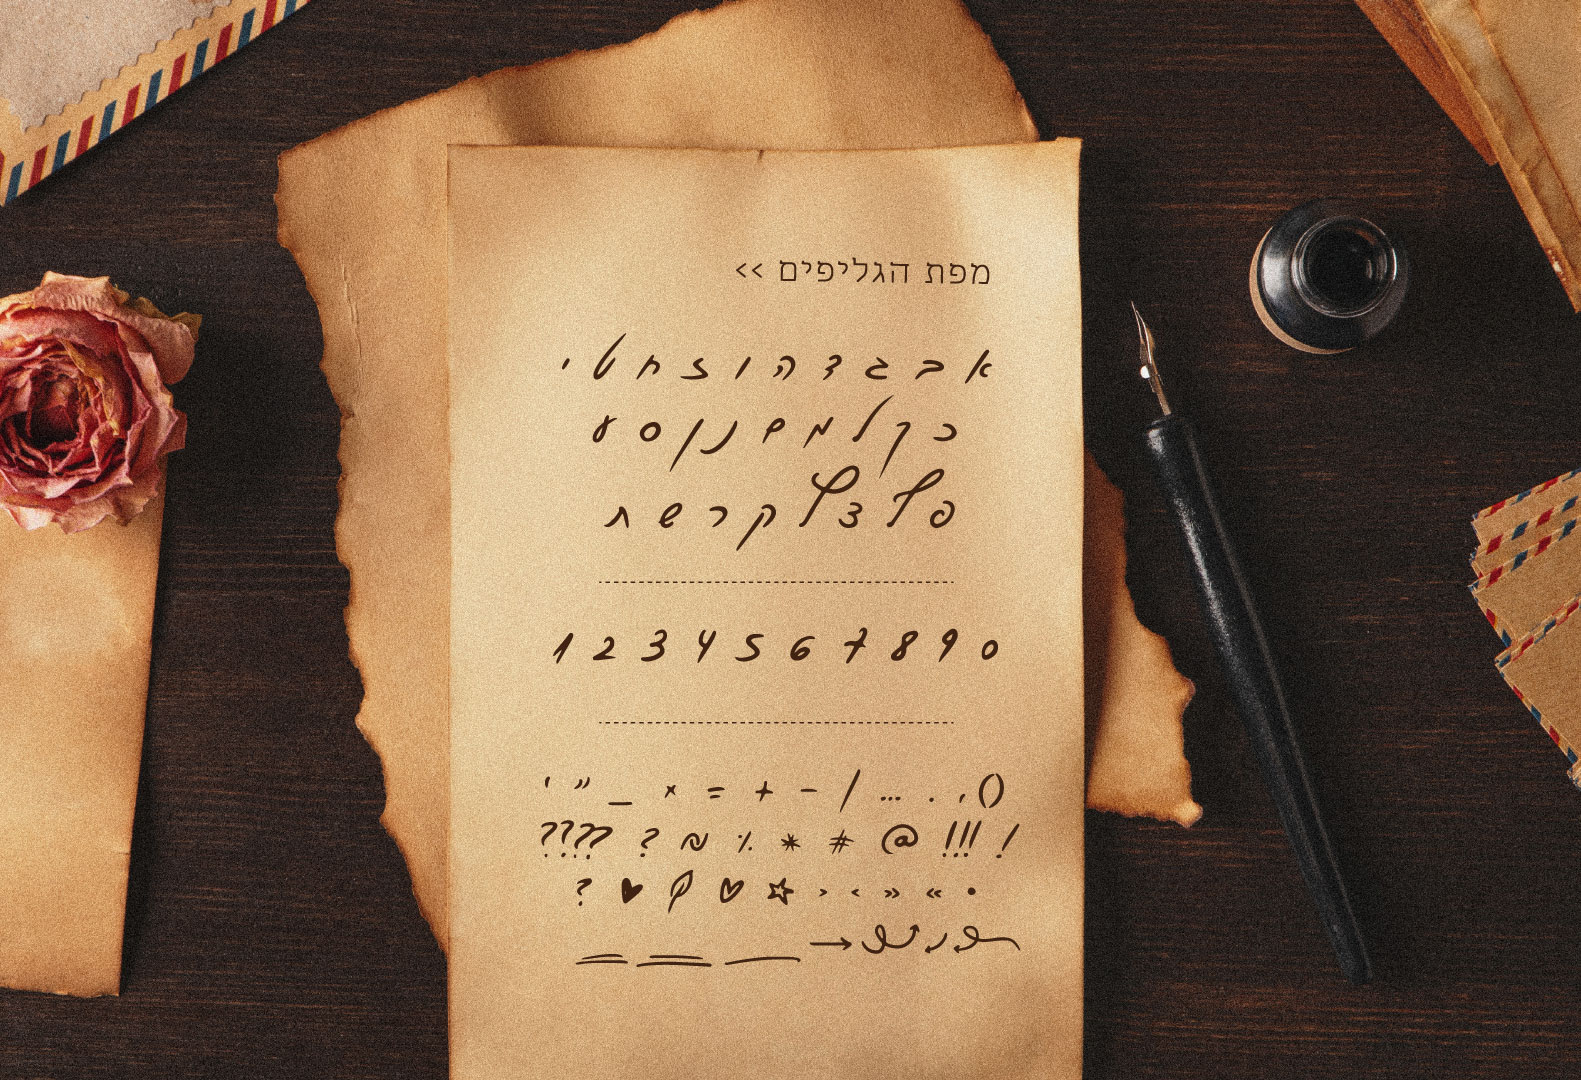 מפת הגליפים >>
א ב ג ד ה ו ז ח ט י
כ ך ל מ ם נ ן ס ע
פ ף צ ץ ק ר ש ת
1 2 3 4 5 6 7 8 9 0
' " _ × = + - / ... . , ()
???? ? ₪ % * # @ !!! !
? ♥ ♡ ☆ › ‹ » « •
→